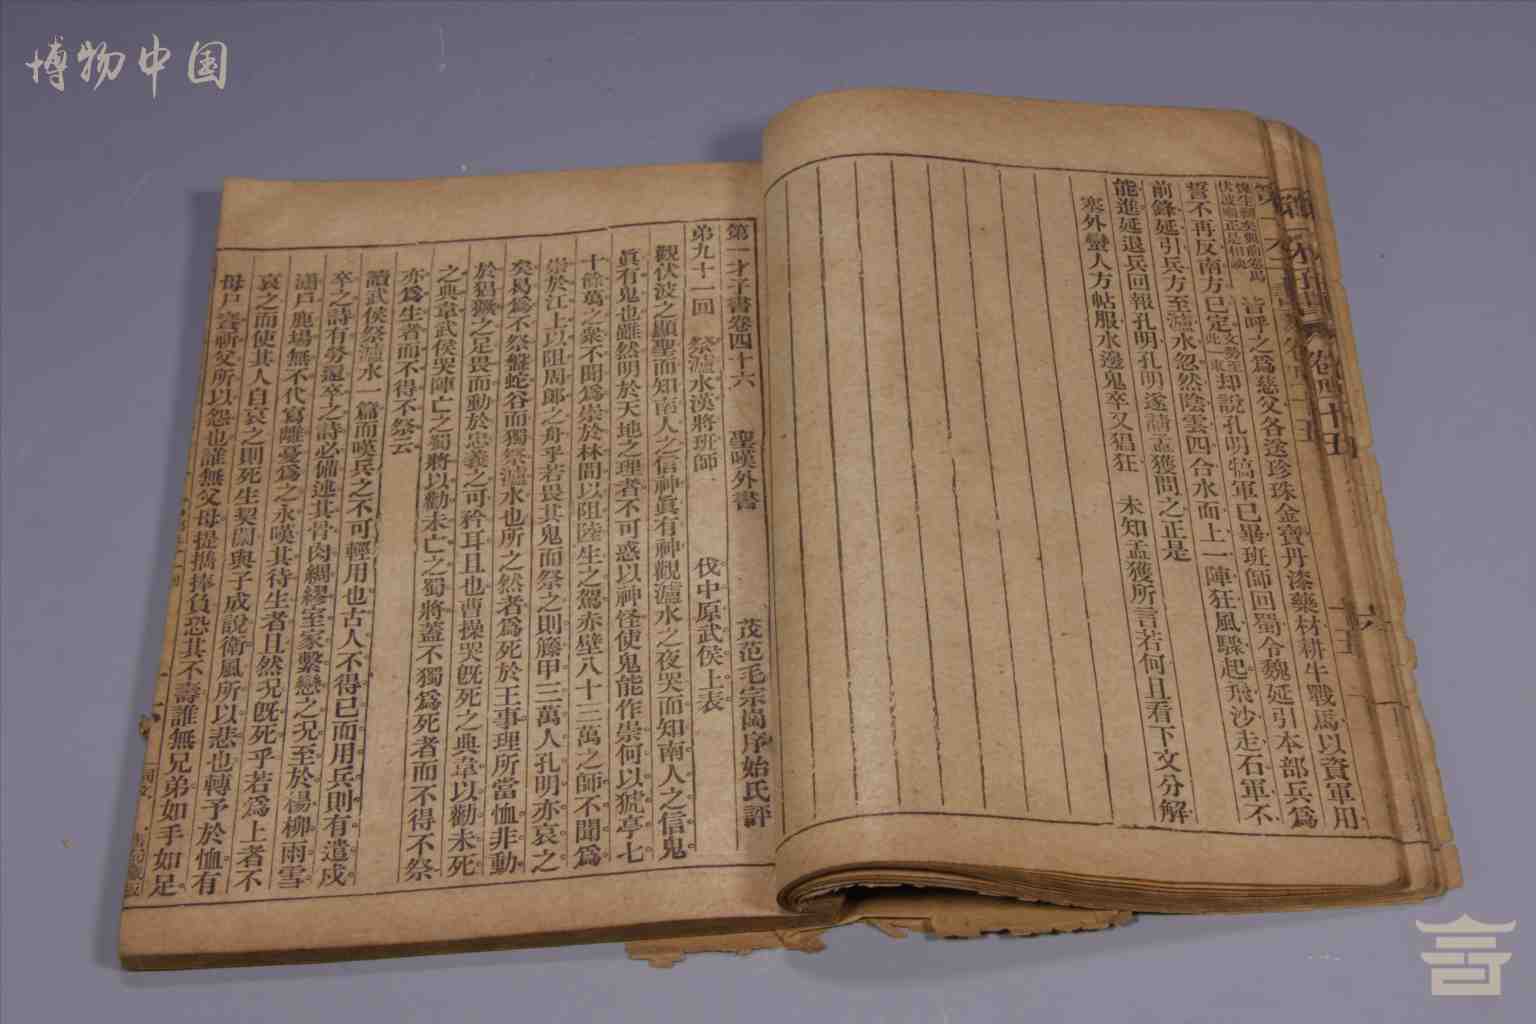 博物中国
皆呼之爲慈父各送珍珠金寶丹漆藥材耕牛戰馬以資軍用
誓不再反南方已定此一束文勢至却說孔明犒軍已畢班師回蜀令魏延引本部兵爲
前鋒延引兵方至瀘水忽然陰雲四合水面上一陣狂風驟起飛沙走石軍不
能進延退兵回報孔明孔明遂請孟獲問之正是
塞外蠻人方帖服水邊鬼卒又猖狂 未知孟獲所言若何且看下文分解
第一才子書卷四十六 聖嘆外書 茂苑毛宗崗序始氏評
弟九十一回 祭瀘水漢將班師 伐中原武侯上表
觀伏波之顯聖而知南人之信神眞有神觀瀘水之夜哭而知南人之信鬼
眞有鬼也雖然明於天地之理者不可惑以神怪使鬼能作祟何以猇亭七
十餘萬之衆不聞爲祟於林間以阻陸生之駕赤壁八十三萬之師不聞爲
祟於江上以阻周郎之舟乎若畏其鬼而祭之則籐甲三萬人孔明亦哀之
矣曷爲不祭盤蛇谷而獨祭瀘水也所之然者爲死於王事理所當恤非動
於猖獗之足畏而動於忠義之可矜耳且也曹操哭旣死之典韋以勸未死
之典韋武侯哭陣亡之蜀將以勸未亡之蜀將蓋不獨爲死者而不得不祭
亦爲生者而不得不祭云
讀武侯祭瀘水一篇而嘆兵之不可輕用也古人不得已而用兵則有遣戍
卒之詩有勞還卒之詩必備述其骨肉綢繆室家繫戀之况至於楊柳雨雪
蠨戶鹿場無不代寫離憂爲之永嘆其待生者且然况旣死乎若爲上者不
哀之而使其人自哀之則死生契闊與子成說衛風所以悲也轉予於恤有
母尸饔祈父所以怨也誰無父母提攜捧負恐其不壽誰無兄弟如手如足